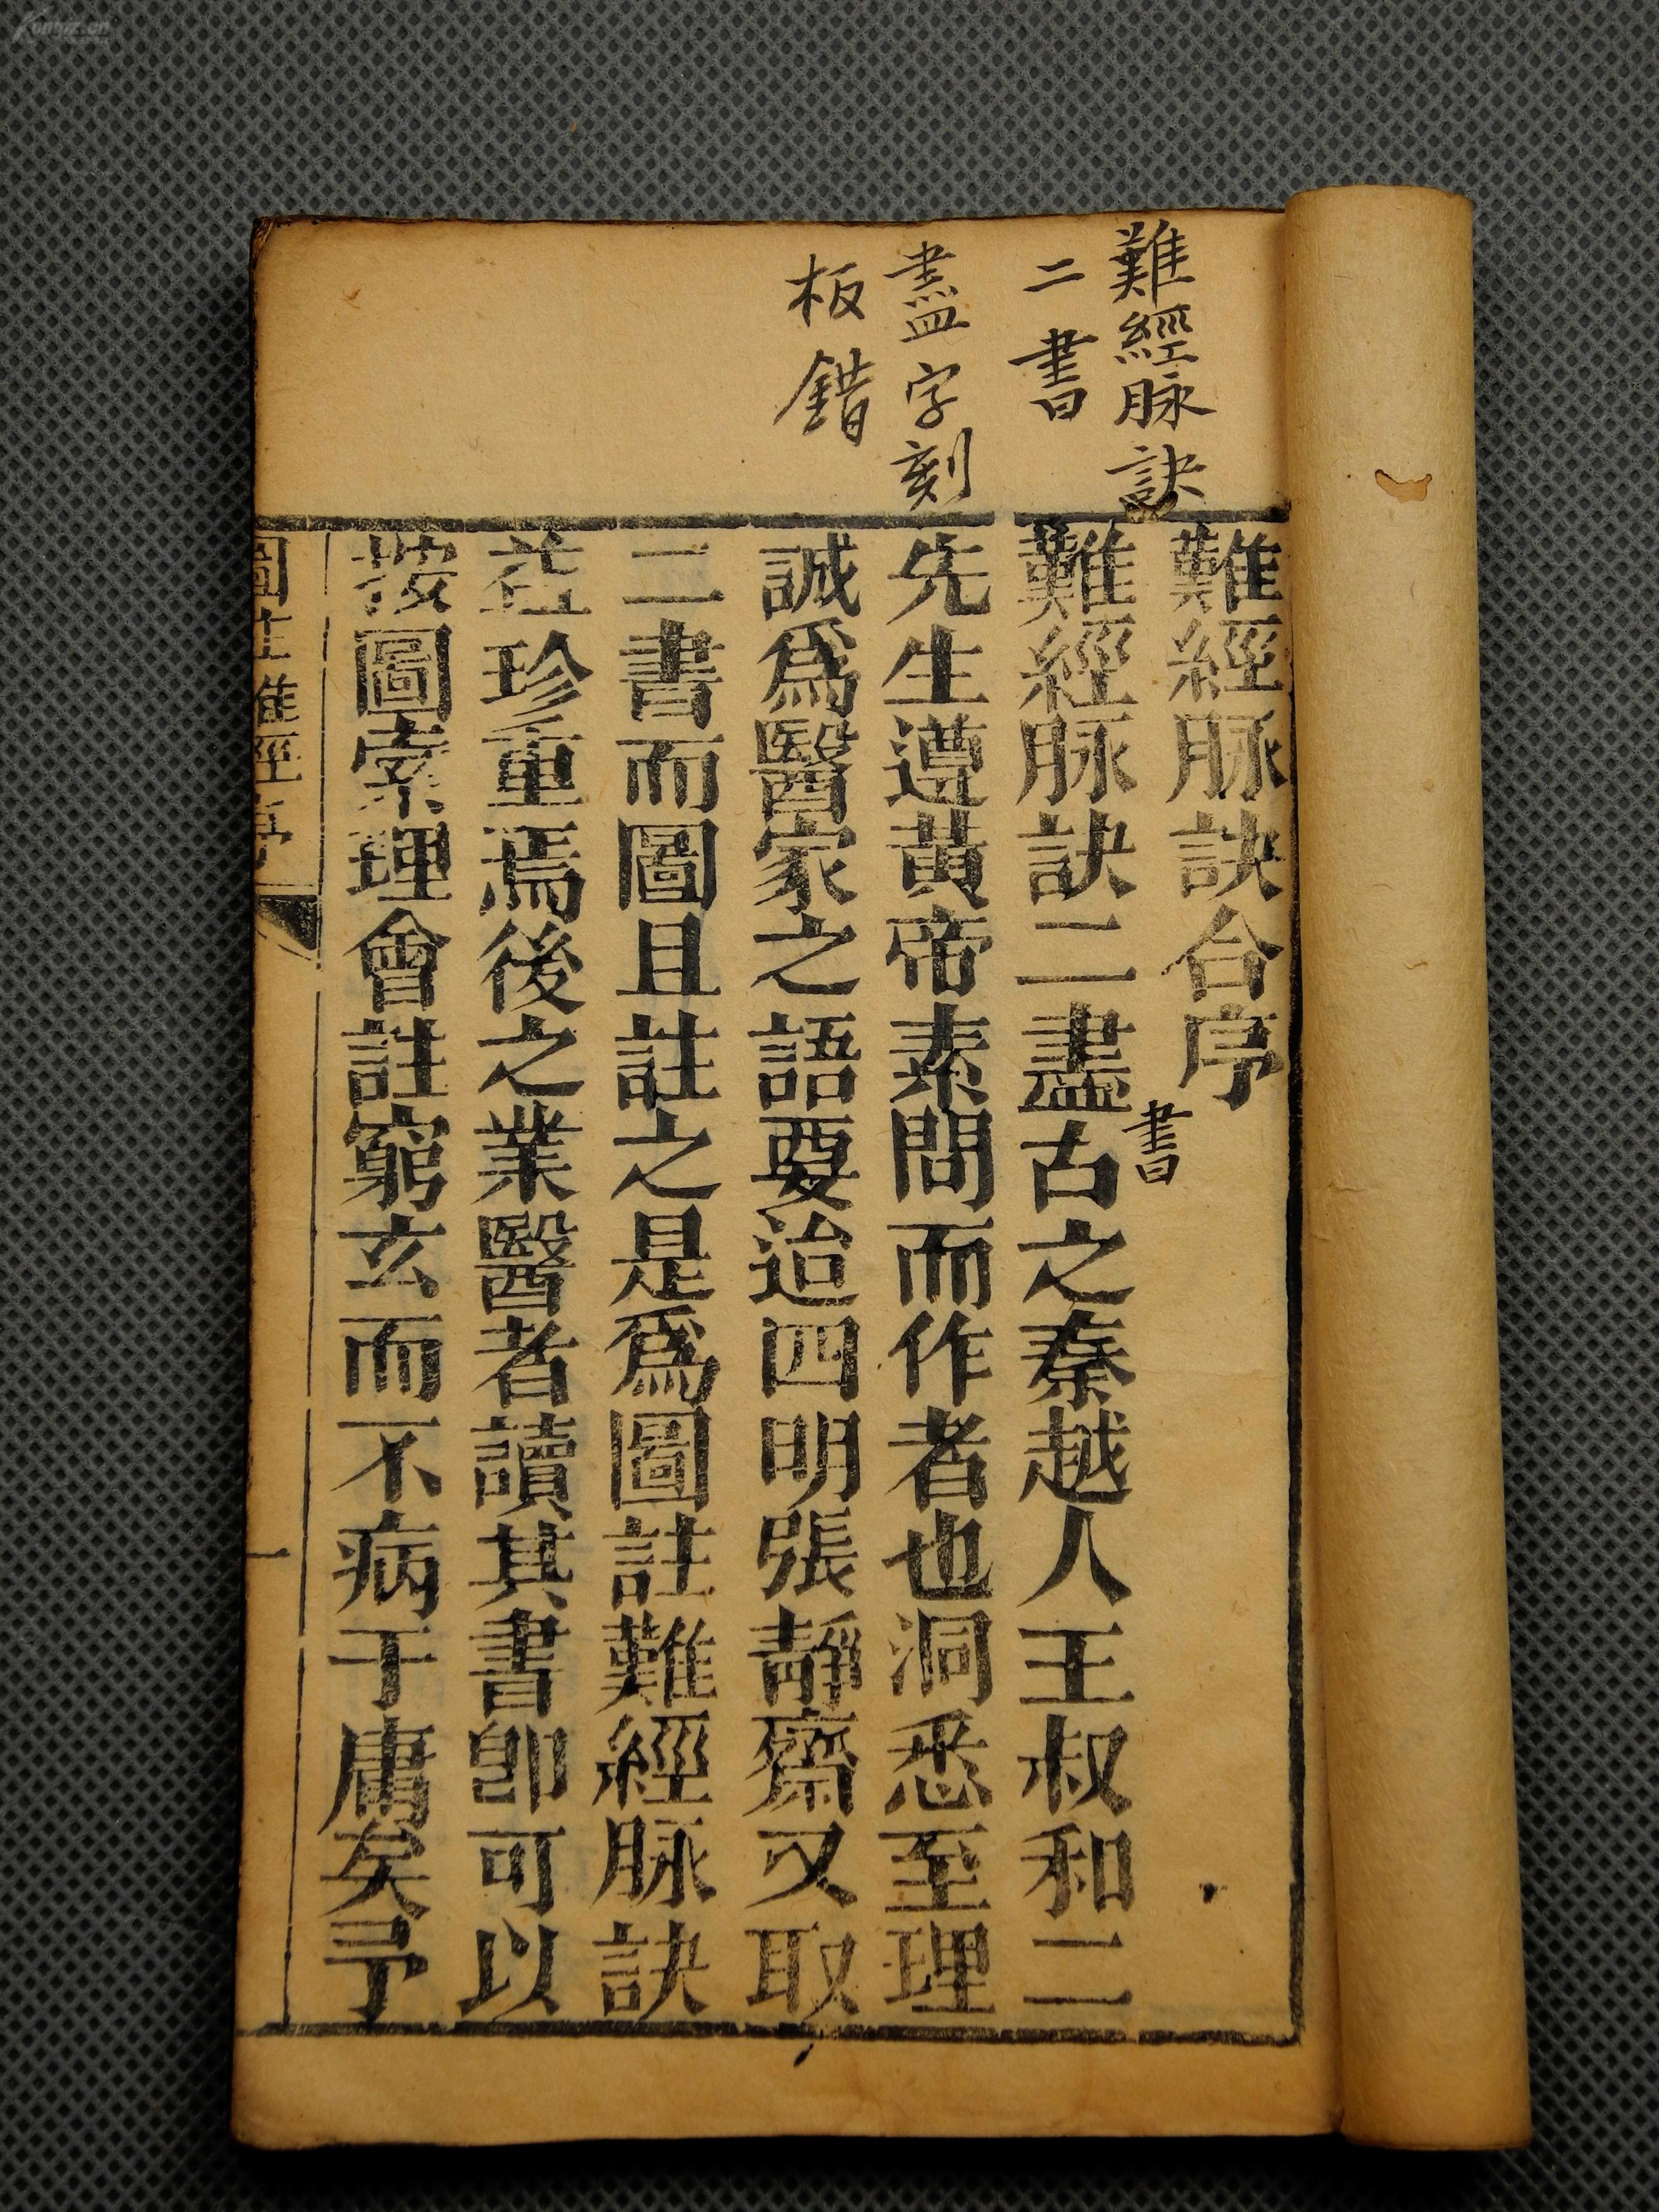 難經脉訣
二書
盡字刻
板錯
難經脈訣合序
難經脈訣二盡古之秦越人王叔和二
書
先生遵黃帝素問而作者也洞悉至理
誠爲醫家之語要迨四明張靜齋又取
二書而圖且註之是爲圖註難經脈訣
益珍重焉後之業醫者讀其書卽可以
按圖索理會註窮玄而不病于庸矣予
圖註難經序
一
Kongfz.cn